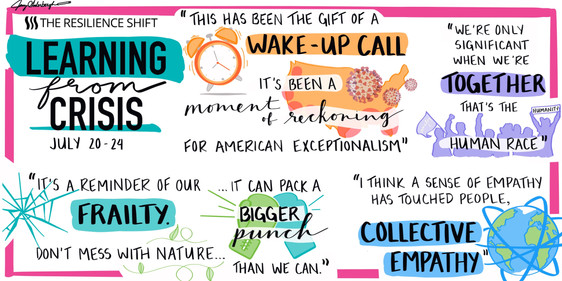 THE RESILIENCE SHIFT
LEARNING
from
CRISIS
JULY 20-24
"THIS HAS BEEN THE GIFT OF A
WAKE-UP CALL
IT'S BEEN A
moment of reckoning
FOR AMERICAN EXCEPTIONALISM"
"WE'RE ONLY
SIGNIFICANT
WHEN WE'RE
TOGETHER
THAT'S THE
HUMANITY
HUMAN RACE"
"IT'S A REMINDER OF OUR
FRAILTY.
DON'T MESS WITH NATURE...
...IT CAN PACK A
BIGGER
punch
THAN WE CAN."
"I THINK A SENSE OF EMPATHY
HAS TOUCHED PEOPLE,
COLLECTIVE
EMPATHY"